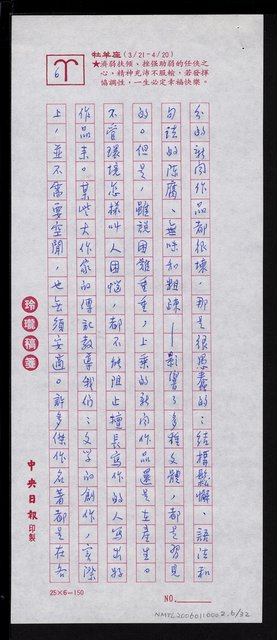 牡羊座(3/21-4/20)
★濟弱扶傾、挫强助弱的任俠之
心，精神充沛不服輸，若發揮
協調性，一生必定幸福快樂。
6
分的新聞作品都很壞，那是很愚蠢的；結構鬆懈、語法和
句讀的陳腐、無味和粗疎——影響了多種文體，都是習見
的。但是，雖説困難重重，上乘的新聞作品還是在產生。
不管環境怎樣叫人困惱，都不能阻止擅長寫作的人寫出好
作品來。某些大作家的傳記教導我們：文学的創作，實際
上，並不需要空閒，也無須安適。許多傑作名著都是在各
玲瓏稿箋
中央日報印製
25×6=150
NO.
NMTL20060110002.6/32